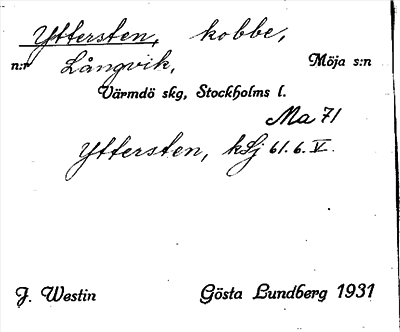 Yttersten, kobbe,
n:r Långvik, Möja s:n
Värmdö skg, Stockholms l.
Ma 71
Yttersten, kSj 61.6.V.
J. Westin Gösta Lundberg 1931